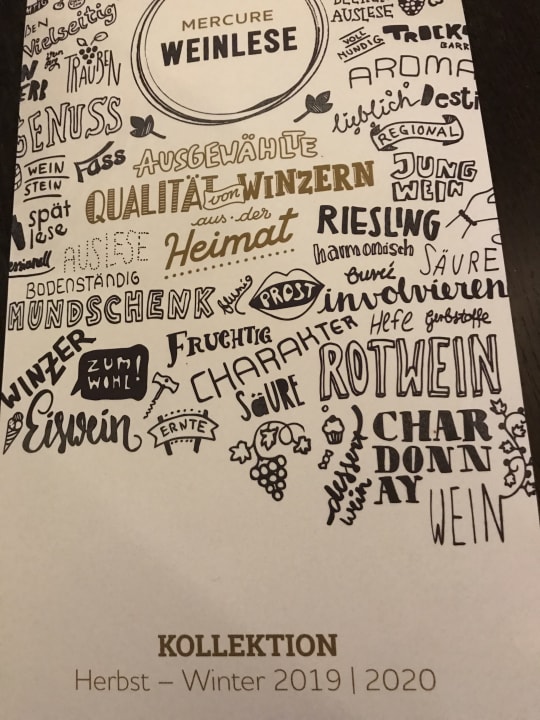 AUSLESE
MERCURE
WEINLESE
Vielseitig
VOLL
MUNDIG
TRAUBEN
AROMA
GENUSS
lieblich
REGIONAL
WEIN
STEIN
Fass
AUSGEWÄHLTE
QUALITÄT von WINZERN
aus der
Heimat
JUNG
WEIN
spät
lese
AUSLESE
RIESLING
harmonisch
SÄURE
BODENSTÄNDIG
MUNDSCHENK
blumig
PROST
cuvée
involvieren
Hefe
Gerbstoffe
WINZER
ZUM
WOHL!
FRUCHTIG
CHARAKTER
SÄURE
ROTWEIN
Eiswein
ERNTE
dessert
wein
CHAR
DONN
AY
WEIN
KOLLEKTION
Herbst – Winter 2019 | 2020